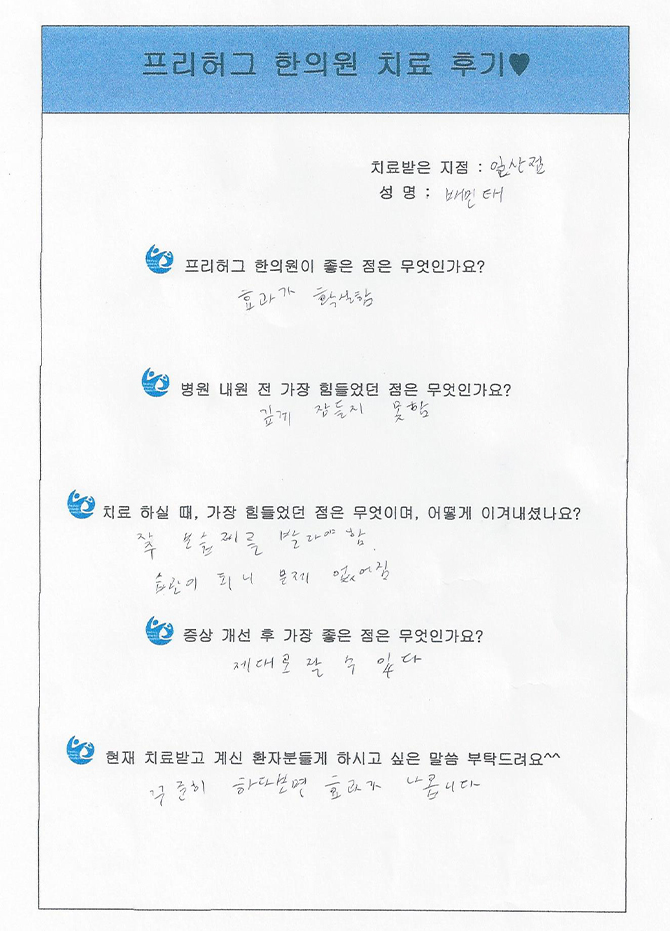 프리허그 한의원 치료 후기♥
치료받은 지점 : 일산점
성 명 ; 배민태
프리허그 한의원이 좋은 점은 무엇인가요?
효과가 확실함
병원 내원 전 가장 힘들었던 점은 무엇인가요?
깊게 잠들지 못함
치료 하실 때, 가장 힘들었던 점은 무엇이며, 어떻게 이겨내셨나요?
자주 보습제를 발라야 함.
습관이 되니 문제 없어짐
증상 개선 후 가장 좋은 점은 무엇인가요?
제대로 잘 수 있다
현재 치료받고 계신 환자분들게 하시고 싶은 말씀 부탁드려요^^
꾸준히 하다보면 효과가 나옵니다